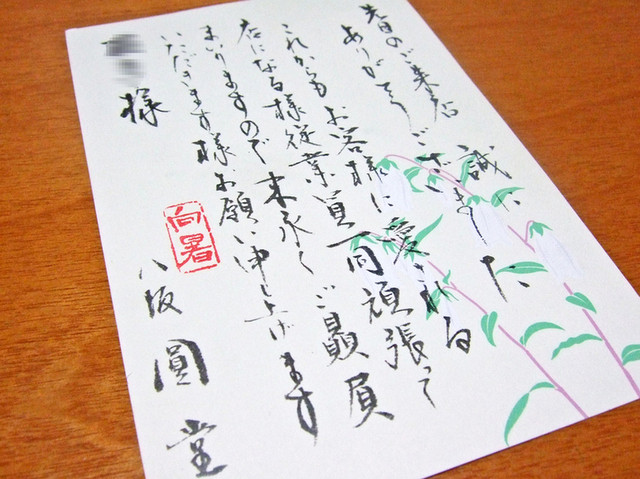 先日のご来店 誠に
ありがとうございました
これからもお客様に愛される
店になる様従業員一同頑張って
まいりますので末永くご贔屓
いただきます様お願い申し上げます
様
向暑
八坂 圓堂